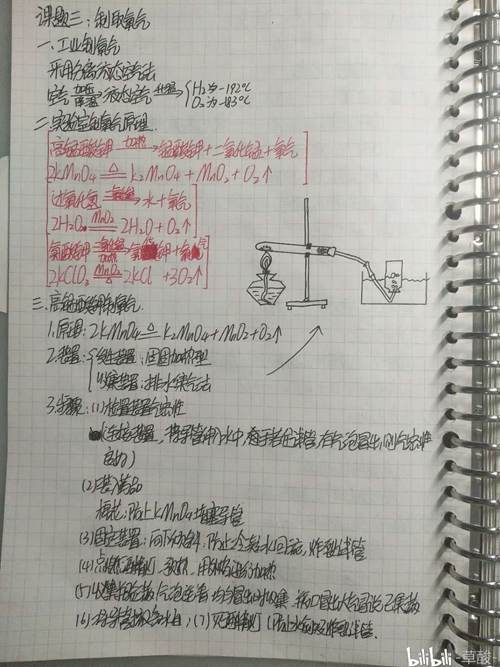 课题三:制取氧气
一.工业制氧气
采用分离液态空气法
空气 加压 降温 液态空气 升温 N₂为-192℃
O₂为-183℃
二.实验室制氧气原理.
高锰酸钾 加热 锰酸钾+二氧化锰+氧气
2KMnO₄ △ K₂MnO₄+MnO₂+O₂↑
过氧化氢 二氧化锰 水+氧气
2H₂O₂ MnO₂ 2H₂O+O₂↑
氯酸钾 二氧化锰 加热 氯 钾+氧气
2KClO₃ MnO₂ △ 2KCl +3O₂↑
三.高锰酸钾制氧气.
1.原理:2KMnO₄ △ K₂MnO₄+MnO₂+O₂↑
2.装置: 发生装置:固固加热型
收集装置:排水集气法
3.步骤:(1)检查装置气密性
(连接装置,将导管伸入水中,手 试管,有气泡冒出,则气密性
良好)
(2)装药品
棉花:防止KMnO₄堵塞导管
(3)固定装置:向下倾斜,防止冷凝水回流,炸裂试管
(4)点燃酒精灯,预热,用 加热
(5)收集 气泡连续均匀冒出时收集,瓶口冒出大气泡说明已集满
(6)将导管撤离水槽;(7)灭酒精灯(防止水倒吸炸裂试管.
bilibili-草酸-